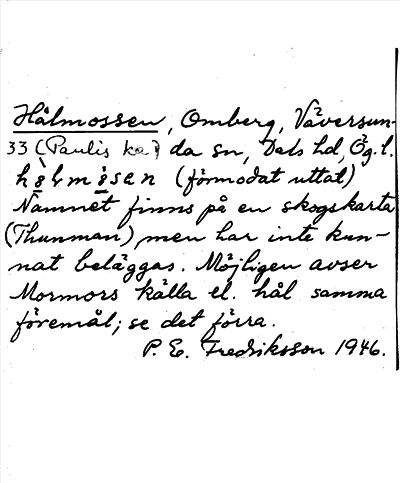 Hålmossen, Omberg, Väversun-
33 (Paulis ka?) da sn, Dals hd, Ög. l.
(förmodat uttal)
Namnet finns på en skogskarta
(Thunman), men har inte kun-
nat beläggas. Möjligen avser
Mormors källa el. hål samma
föremål; se det förra.
P. E. Fredriksson 1946.